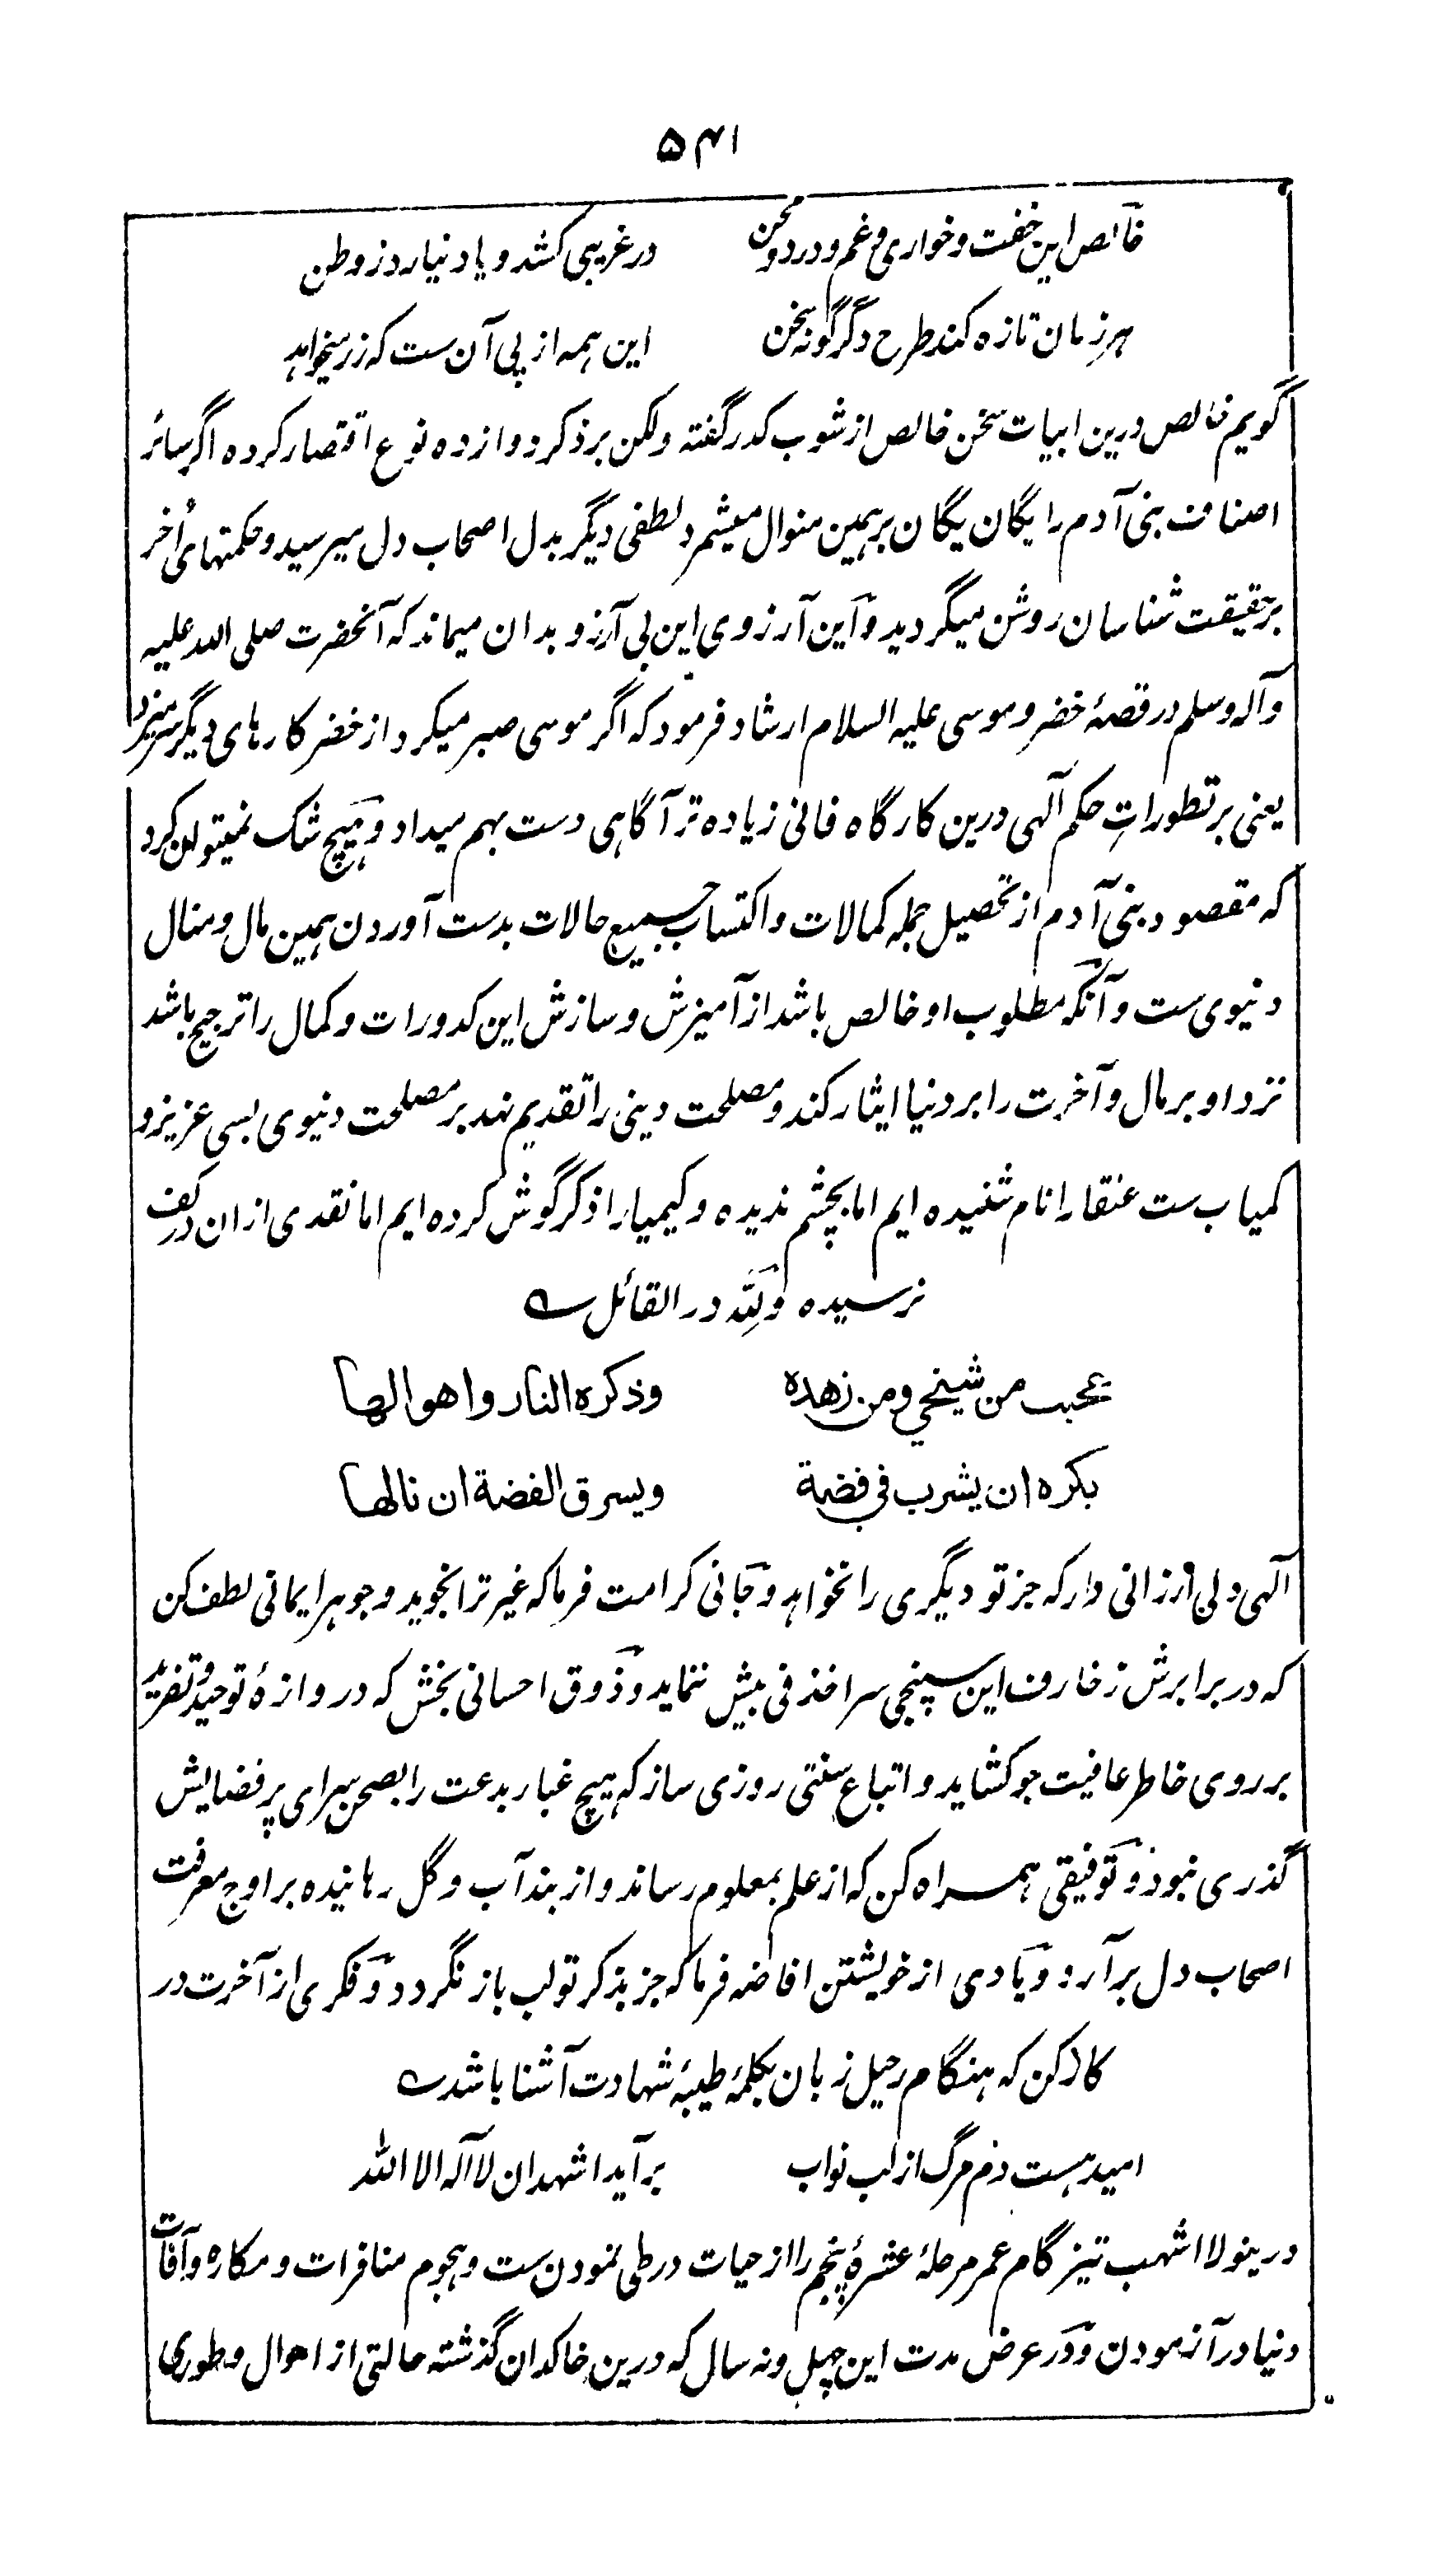 ۵۴۱
خالص این خفت و خواری و غم و درد و محن در غریبی کشد و یاد نیارد ز وطن
هر زمان تازه کند طرح دگرگونه سخن این همه از پی آن ست که زر میخواهد
گویم خالص درین ابیات سخن خالص از شوب کدر گفته ولکن بر ذکر دوازده نوع اقتصار کرده اگر سائر
اصناف بنی آدم را یگان یگان بر همین منوال میشمرد لطفی دیگر بدل اصحاب دل میرسید و حکمتهای اُخر
بر حقیقت شناسان روشن میگردید و این آرزوی این بی آرزو بدان میماند که آنحضرت صلی الله علیه
و آله وسلم در قصهٔ خضر و موسی علیه السلام ارشاد فرمود که اگر موسی صبر میکرد از خضر کارهای دیگر سرمیزد
یعنی بر تطوراتِ حکم آلهی درین کارگاه فانی زیاده تر آگاهی دست بهم میداد و هیچ شک نمیتوان کرد
که مقصود بنی آدم از تحصیل جمله کمالات و اکتساب جمیع حالات بدست آوردن همین مال و منال
دنیوی ست و آنکه مطلوب او خالص باشد از آمیزش و سازش این کدورات و کمال را ترجیح باشد
نزد او بر مال و آخرت را بر دنیا ایثار کند و مصلحت دینی را تقدیم نهد بر مصلحت دنیوی بسی عزیز و
کمیاب ست عنقا را نام شنیده ایم اما بچشم ندیده و کیمیا را ذکر گوش کرده ایم اما نقدی ازان در کف
نرسیده وللّه در القائل ے
عجبت من شیخي ومن زهده وذکره النار واهوالها
یکره ان یشرب في فضة ویسرق الفضة ان نالها
آلهی دلی ارزانی دار که جز تو دیگری را نخواهد و جانی کرامت فرما که غیر ترا نجوید و جوهر ایمانی لطف کن
که در برابرش زخارف این سپنجی سرا خذفی بیش ننماید و ذوق احسانی بخش که دروازهٔ توحید و تفرید
بر روی خاطر عافیت جو کشاید و اتباع سنتی روزی ساز که هیچ غبار بدعت را بصحن سرای پر فضایش
گذری نبود و توفیقی همراه کن که از علم بمعلوم رساند و از بند آب و گل رهانیده بر اوج معرفت
اصحاب دل برآرد و یادی از خویشتن افاضه فرما که جز بذکر تو لب باز نگردد و فکری از آخرت در
کار کن که هنگام رحیل زبان بکلمهٔ طیبهٔ شهادت آشنا باشد ے
امید هست دم مرگ از لب نواب برآید اشهد ان لا آله الا الله
درینولا اشهب تیز گام عمر مرحلهٔ عشرهٔ پنجم را از حیات در طی نمودن ست و هجوم منافرات و مکاره و آفات
دنیا در آزمودن و در عرض مدت این چهل و نه سال که درین خاکدان گذشته حالتی از احوال و طوری